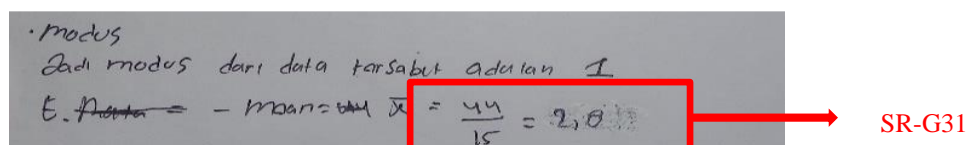 · modus
Jadi modus dari data tarsabut adalan 1
E. - mean = x̄ = 44/15 = 2,8
SR-G31